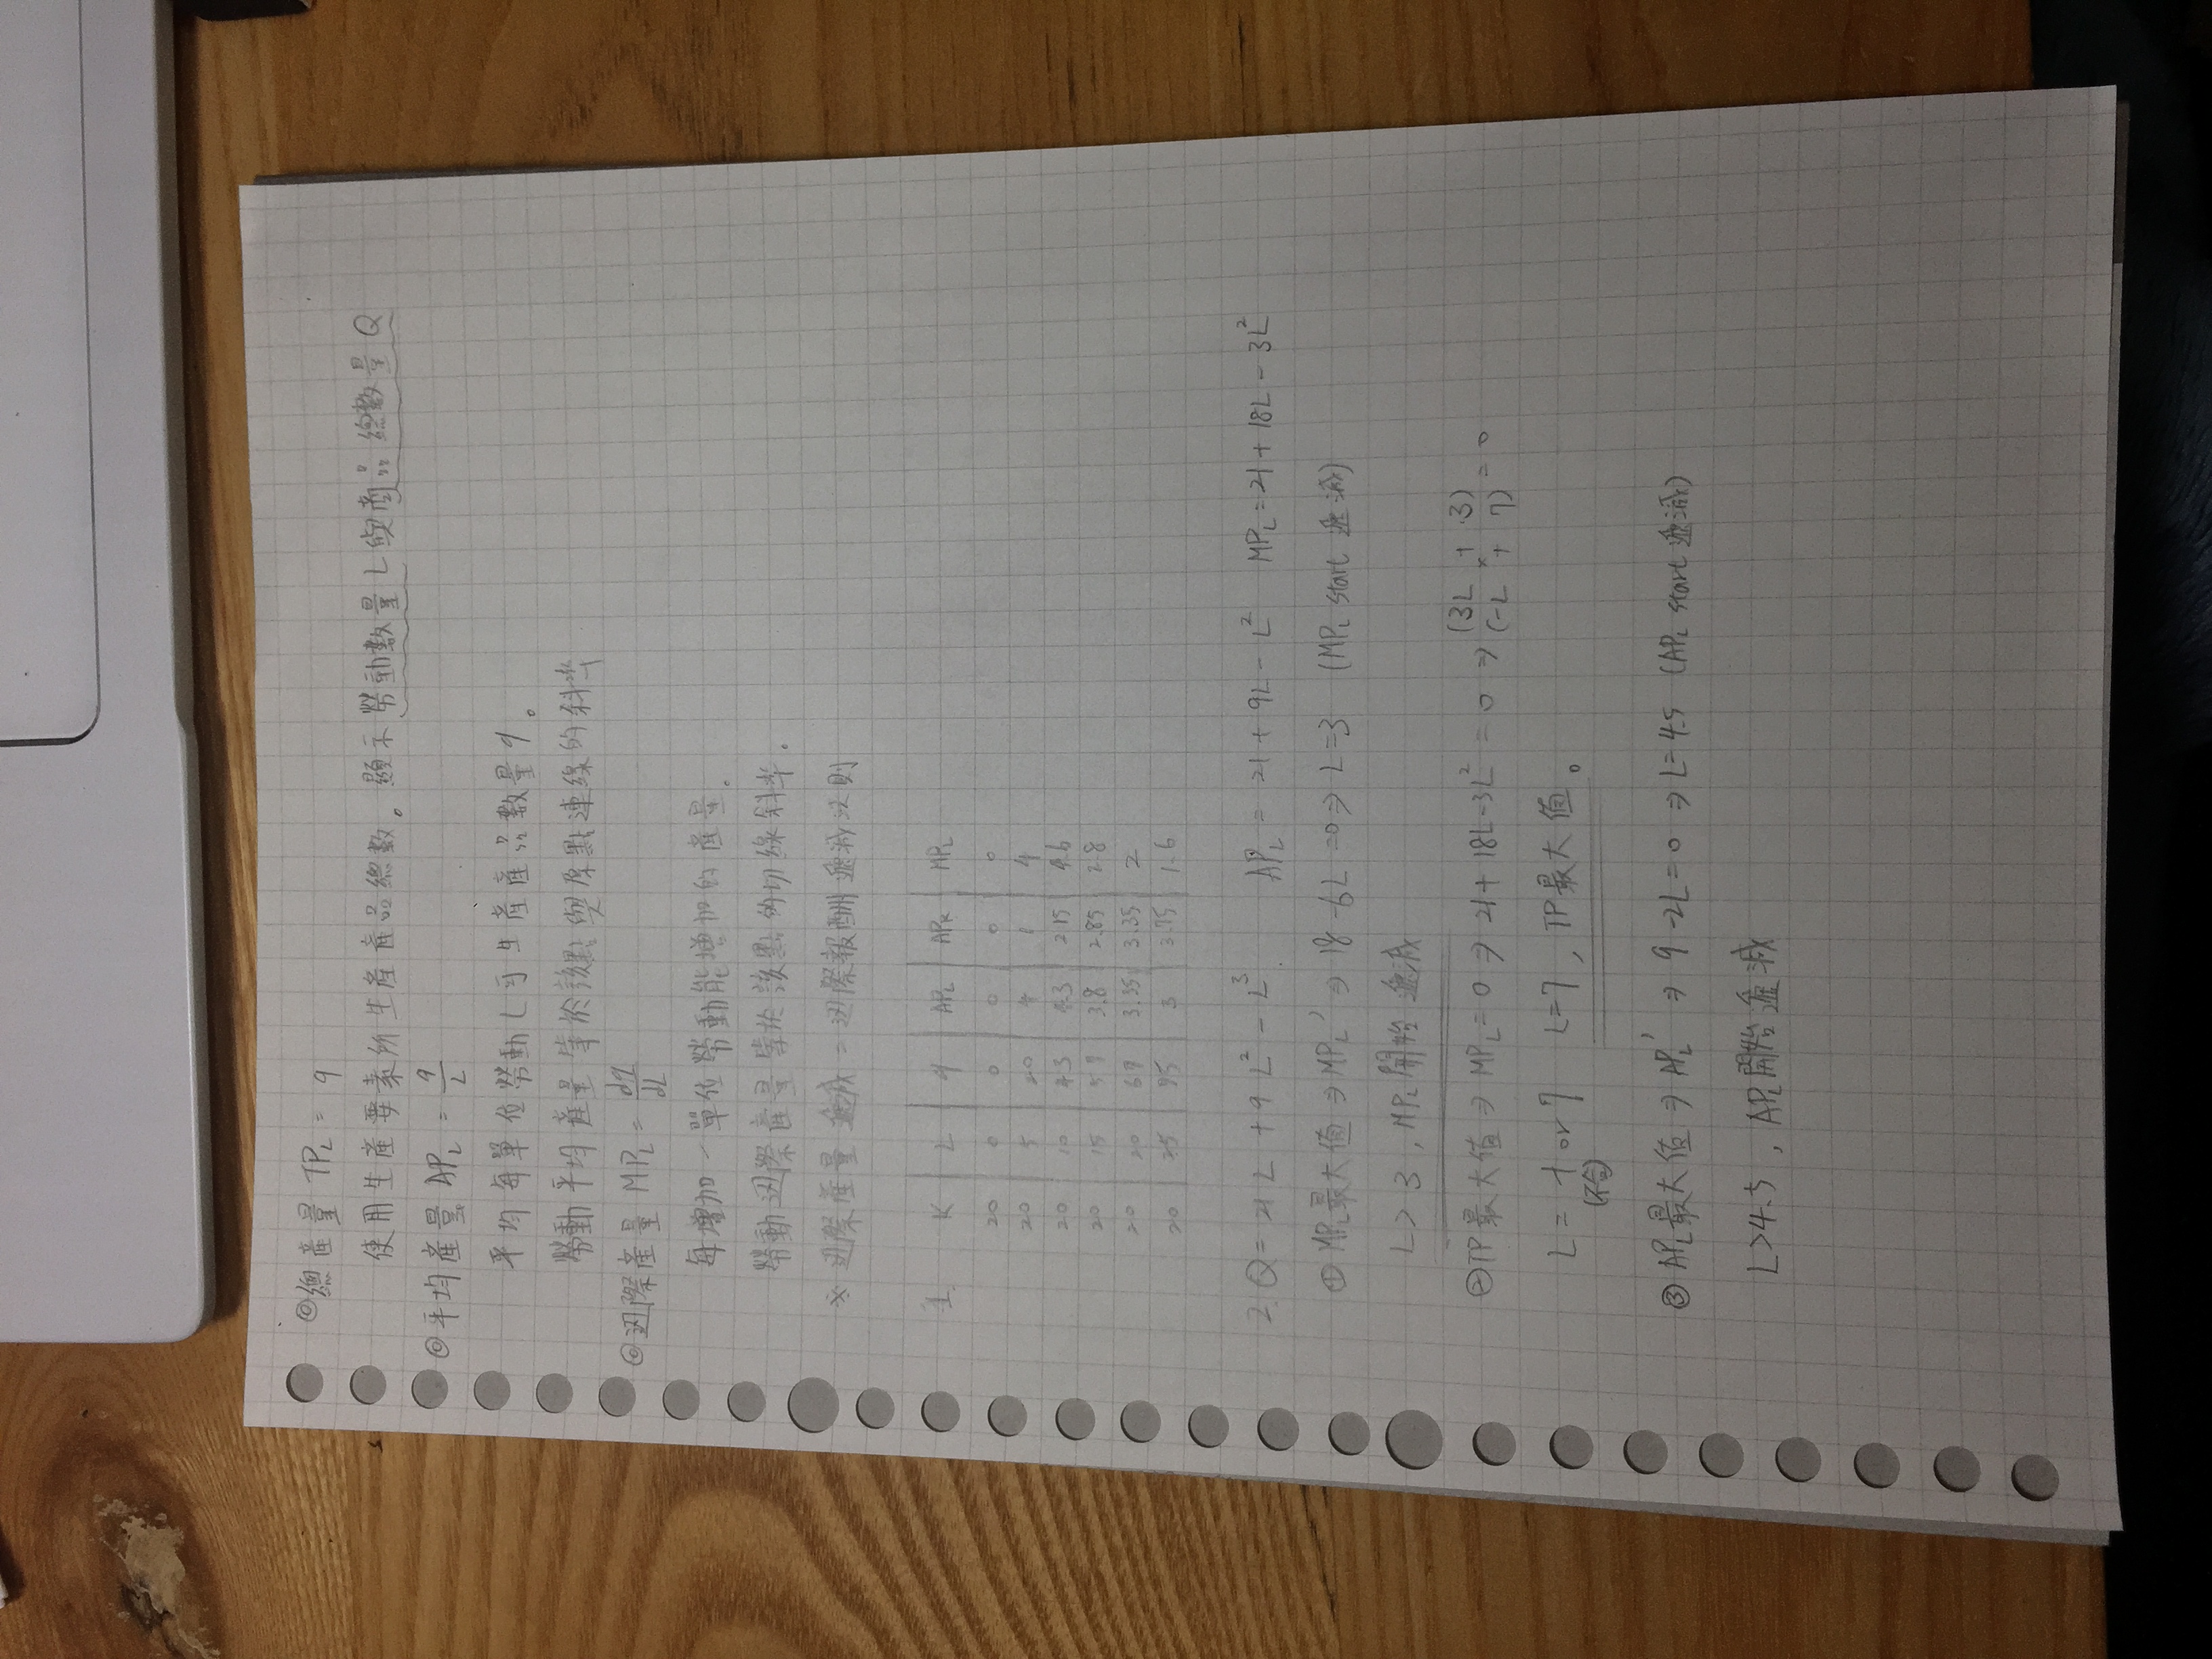 ◎總產量 TPL = q
使用生產要素所生產產品總數。顯示勞動數量L與商品總數量Q
◎平均產量 APL = q/L
平均每單位勞動L可生產產品數量q。
勞動平均產量等於該點與原點連線的斜率
◎边際產量 MPL = dq/dL
每增加一單位勞動能增加的產量。
勞動边際產量等於該點的切線斜率。
※边際產量遞減=边際報酬遞減法則
1. K L q APL APK MPL
20 0 0 0 0 0
20 5 20 4 1 4
20 10 43 4.3 2.15 4.6
20 15 57 3.8 2.85 2.8
20 20 67 3.35 3.35 2
20 25 75 3 3.75 1.6
2. Q = 21L + 9L² - L³. APL = 21 + 9L - L² MPL = 21 + 18L - 3L²
① MPL最大值 ⇒ MPL' ⇒ 18 - 6L = 0 ⇒ L = 3 (MPL start 遞減)
L > 3, MPL開始遞減
② TP最大值 ⇒ MPL = 0 ⇒ 21 + 18L - 3L² = 0 ⇒ (3L + 3) × (-L + 7) = 0
L = -1 or 7 L = 7, TP最大值。
(不合)
③ APL最大值 ⇒ APL' ⇒ 9 - 2L = 0 ⇒ L = 4.5 (APL start 遞減)
L > 4.5, APL開始遞減